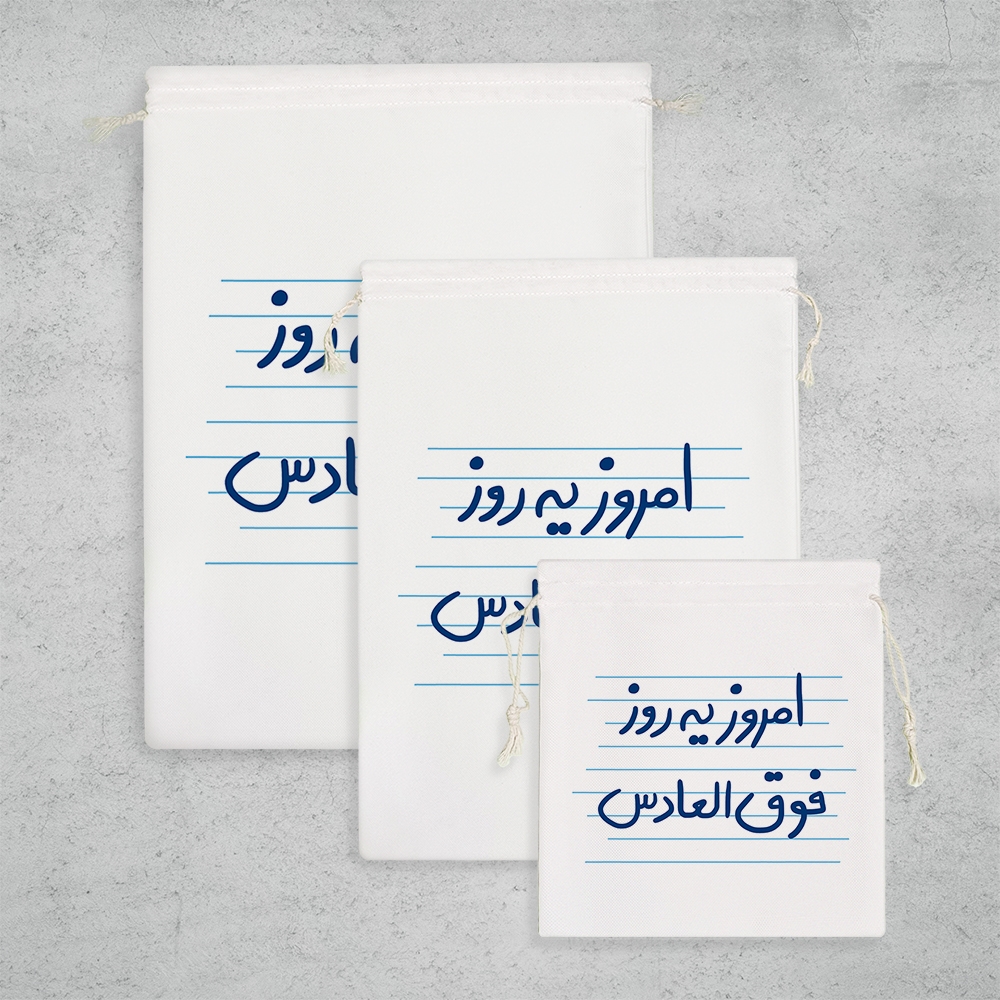 روز
ادس
امروز یه روز
ادس
امروز یه روز
فوق العادس